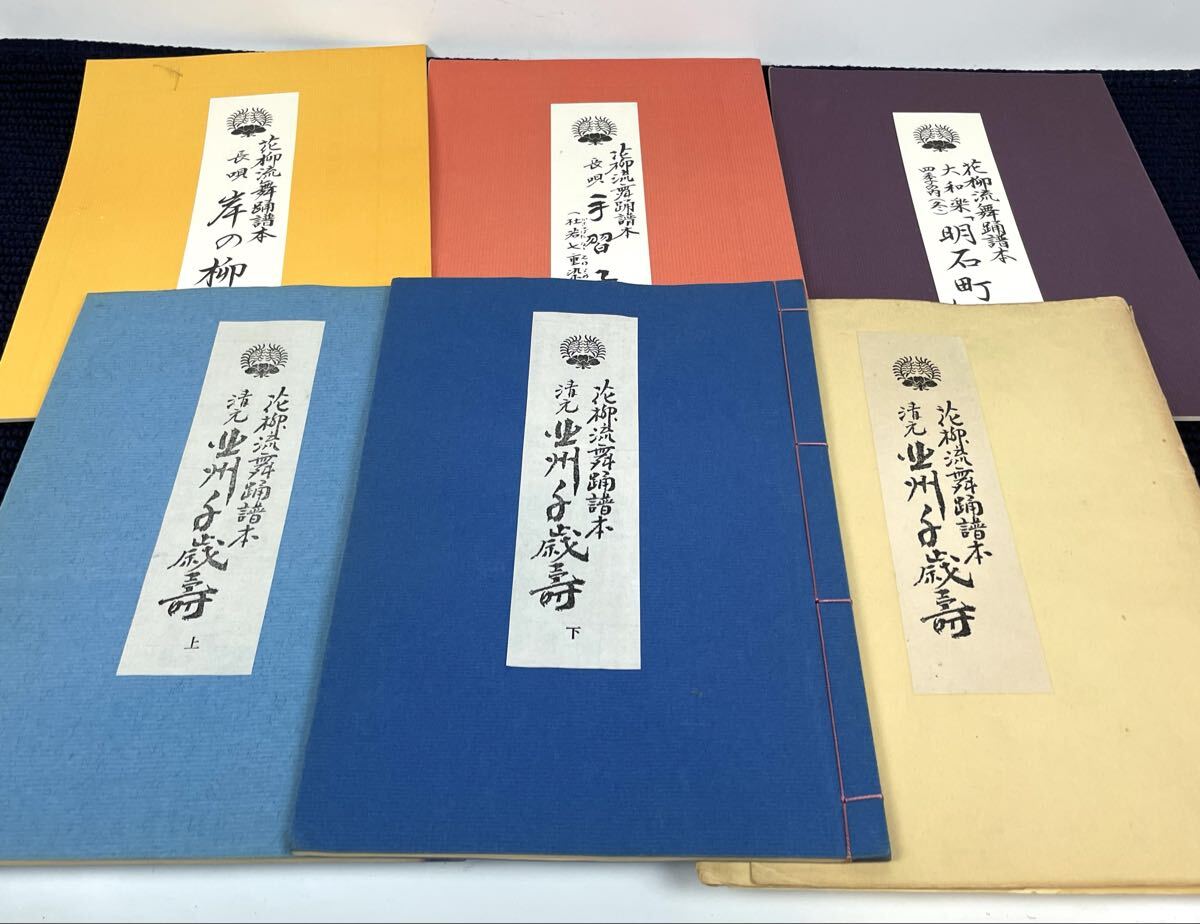 花柳流舞踊譜本
長唄 岸の柳
花柳流舞踊譜本
長唄 手習子
(杜若七重染
花柳流舞踊譜本
大和楽「明石町
四季の内(冬)
花柳流舞踊譜本
清元 北州千歳壽
上
花柳流舞踊譜本
清元 北州千歳壽
下
花柳流舞踊譜本
清元 北州千歳壽